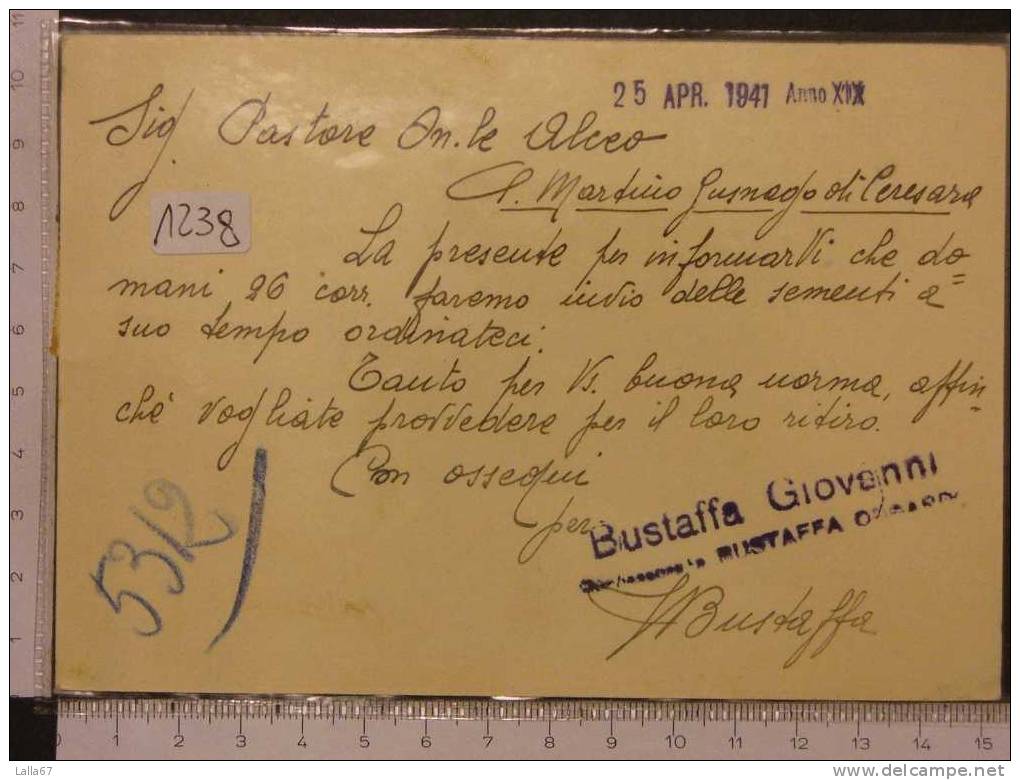 25 APR. 1941 Anno XIX
Sig. Pastore On.le Alceo
S. Martino Gusnago di Ceresara
1238
La presente per informarVi che do=
mani 26 corr. faremo invio delle sementi a
suo tempo ordinateci.
Tanto per Vs. buona norma, affin-
chè vogliate provvedere per il loro ritiro.
Con ossequi
per
Bustaffa Giovanni
BUSTAFFA
Bustaffa
5312
11
10
9
8
7
6
5
4
3
2
1
1 2 3 4 5 6 7 8 9 10 11 12 13 14 15
Lalla67
delcampe.net